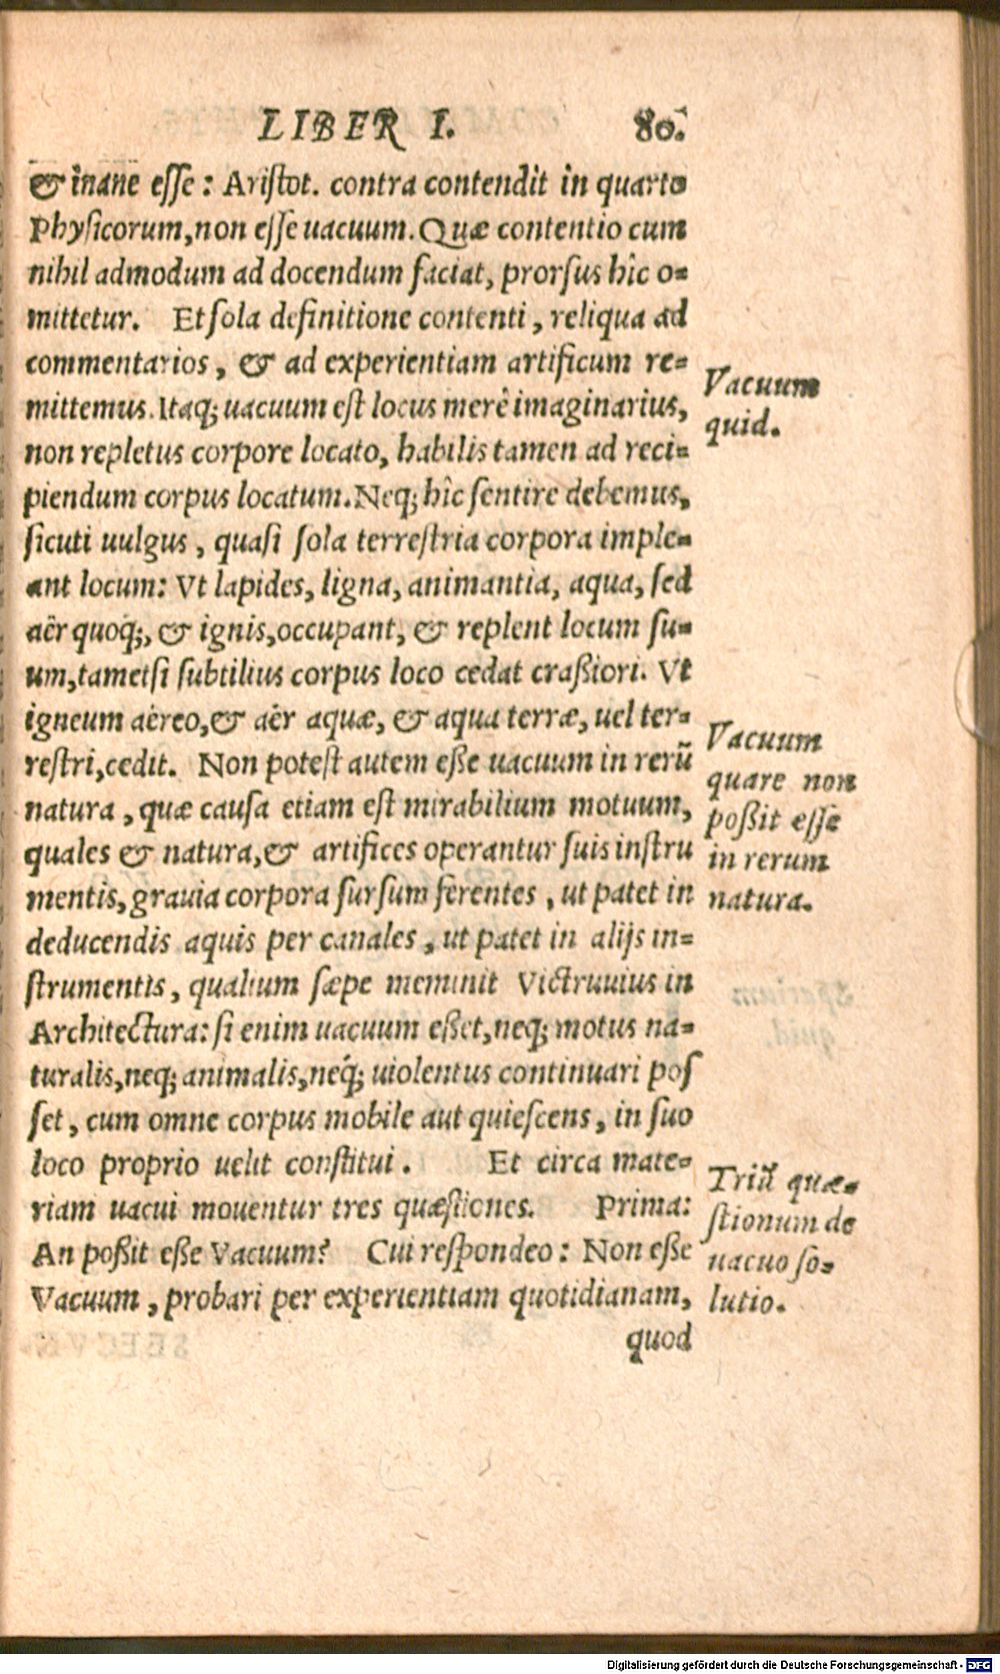 LIBER I. 80.
& inane esse: Aristot. contra contendit in quarto
Physicorum, non esse uacuum. Quæ contentio cum
nihil admodum ad docendum faciat, prorsus hîc o=
mittetur. Et sola definitione contenti, reliqua ad
commentarios, & ad experientiam artificum re=
mittemus. Itaq; uacuum est locus merè imaginarius,
non repletus corpore locato, habilis tamen ad reci=
piendum corpus locatum. Neq; hîc sentire debemus,
sicuti uulgus, quasi sola terrestria corpora imple=
ant locum: Vt lapides, ligna, animantia, aqua, sed
aër quoq;, & ignis, occupant, & replent locum su=
um, tametsi subtilius corpus loco cedat craßiori. Vt
igneum aëreo, & aër aquæ, & aqua terræ, uel ter=
restri, cedit. Non potest autem eße uacuum in rerũ
natura, quæ causa etiam est mirabilium motuum,
quales & natura, & artifices operantur suis instru
mentis, grauia corpora sursum ferentes, ut patet in
deducendis aquis per canales, ut patet in alijs in=
strumentis, qualium sæpe meminit Victruuius in
Architectura: si enim uacuum eßet, neq; motus na=
turalis, neq; animalis, neq́; uiolentus continuari pos
set, cum omne corpus mobile aut quiescens, in suo
loco proprio uelit constitui. Et circa mate=
riam uacui mouentur tres quæstiones. Prima:
An poßit eße Vacuum? Cui respondeo: Non eße
Vacuum, probari per experientiam quotidianam,
quod
Vacuum
quid.
Vacuum
quare non
poßit esse
in rerum
natura.
Triũ quæ=
stionum de
uacuo so=
lutio.
Digitalisierung gefördert durch die Deutsche Forschungsgemeinschaft - DFG